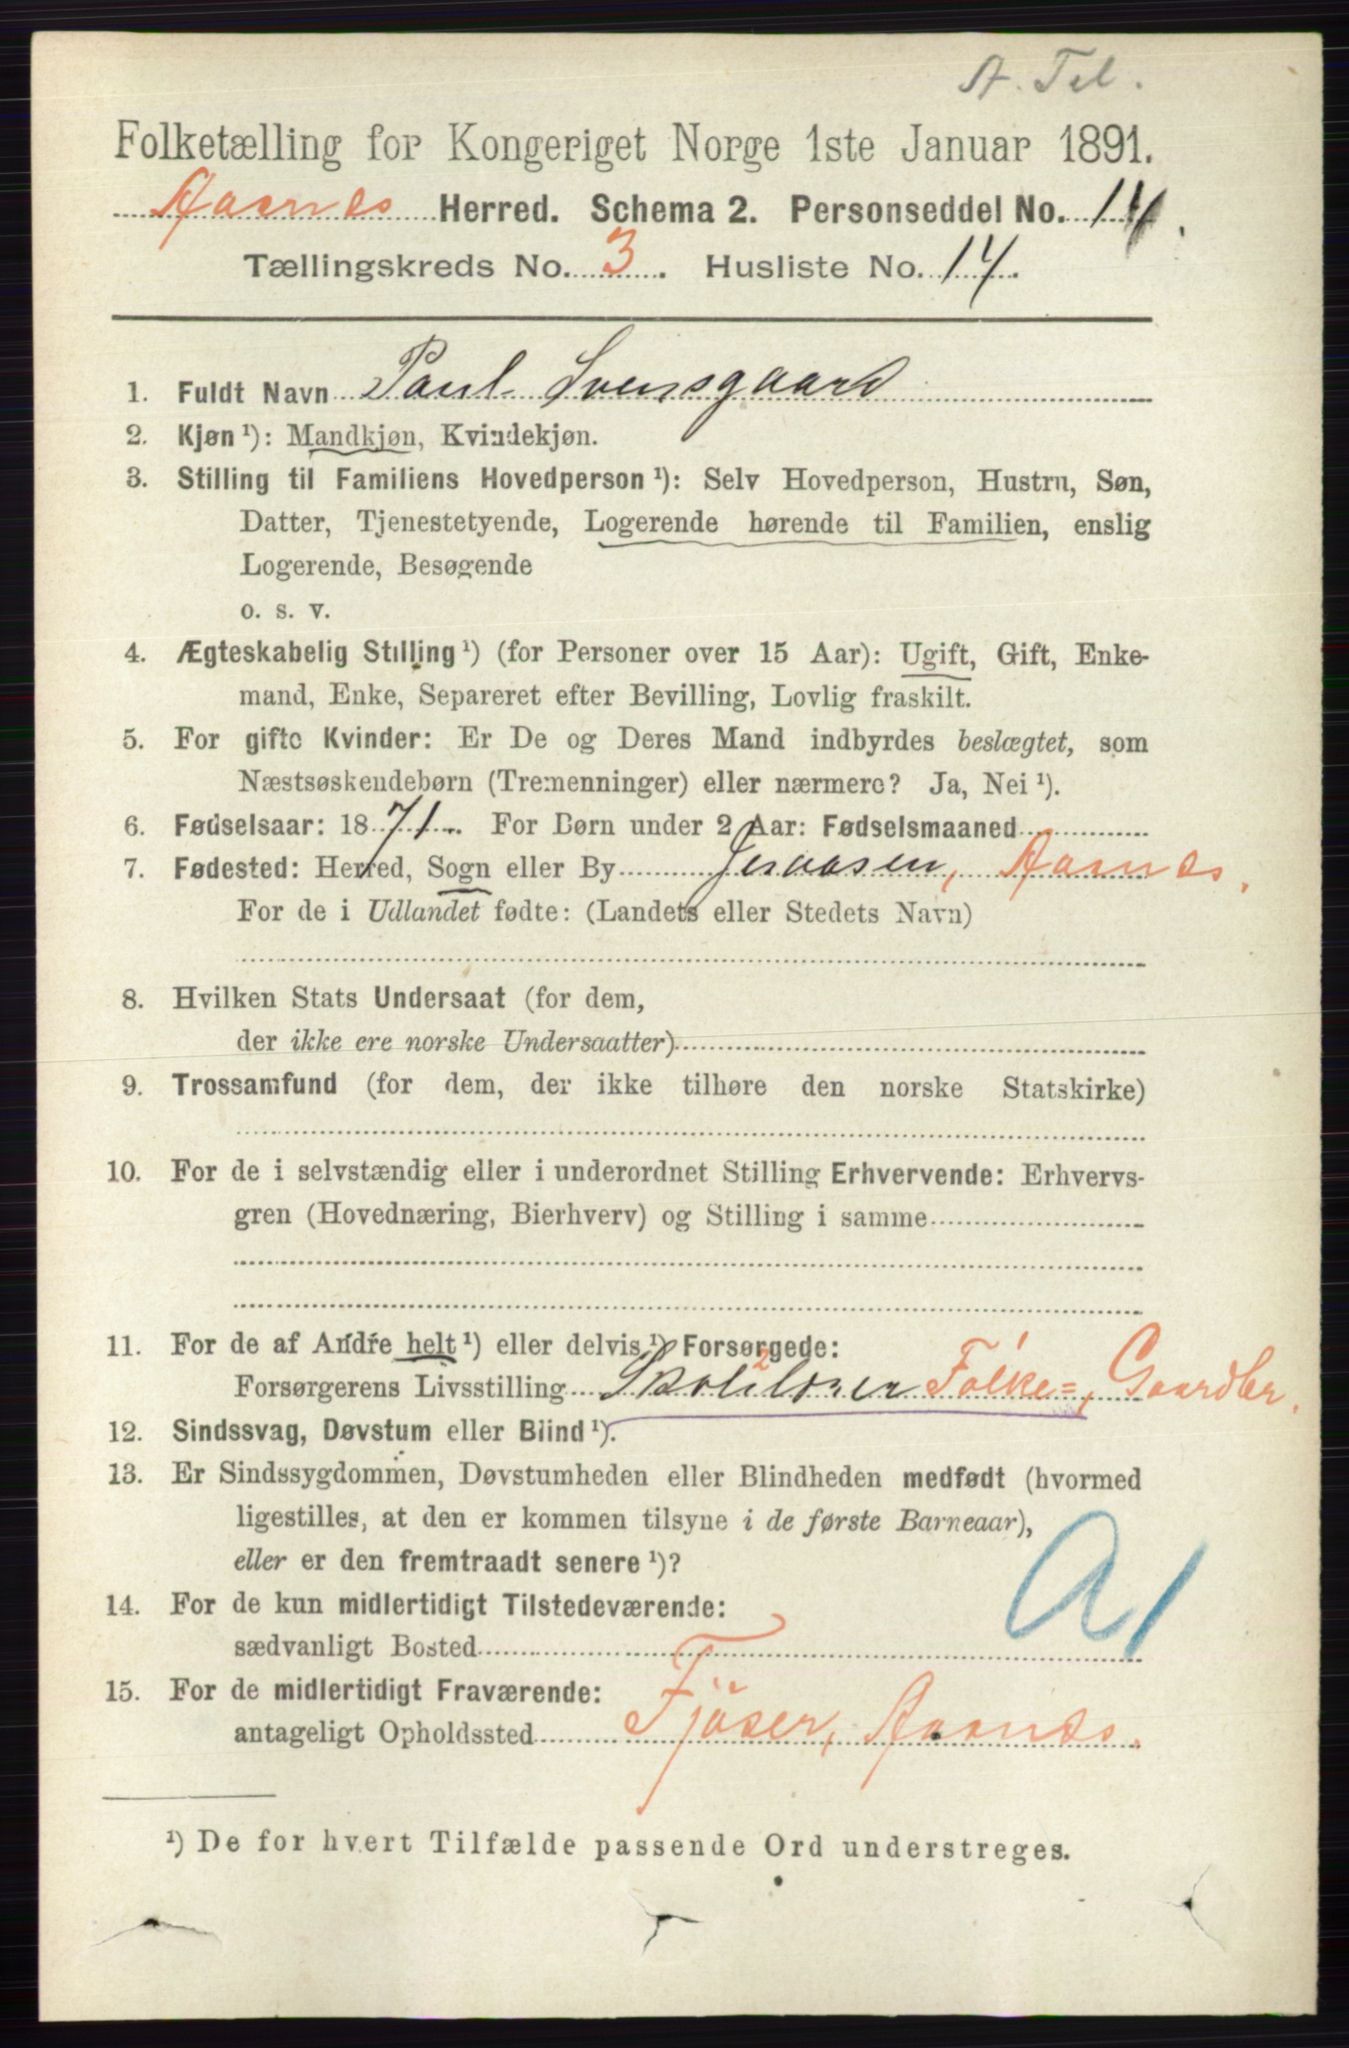 A. Tel.
Folketælling for Kongeriget Norge 1ste Januar 1891.
Aasnes Herred. Schema 2. Personseddel No. 14.
Tællingskreds No. 3. Husliste No. 14.
1. Fuldt Navn Paul Svensgaard
2. Kjøn ¹): Mandkjøn, Kvindekjøn.
3. Stilling til Familiens Hovedperson ¹): Selv Hovedperson, Hustru, Søn,
Datter, Tjenestetyende, Logerende hørende til Familien, enslig
Logerende, Besøgende
o. s. v.
4. Ægteskabelig Stilling ¹) (for Personer over 15 Aar): Ugift, Gift, Enke-
mand, Enke, Separeret efter Bevilling, Lovlig fraskilt.
5. For gifte Kvinder: Er De og Deres Mand indbyrdes beslægtet, som
Næstsøskendebørn (Tremenninger) eller nærmere? Ja, Nei ¹).
6. Fødselsaar: 1871. For Børn under 2 Aar: Fødselsmaaned
7. Fødested: Herred, Sogn eller By Aasnes.
For de i Udlandet fødte: (Landets eller Stedets Navn)
8. Hvilken Stats Undersaat (for dem,
der ikke ere norske Undersaatter)
9. Trossamfund (for dem, der ikke tilhøre den norske Statskirke)
10. For de i selvstændig eller i underordnet Stilling Erhvervende: Erhvervs-
gren (Hovednæring, Bierhverv) og Stilling i samme
11. For de af Andre helt ¹) eller delvis ¹) Forsørgede:
Forsørgerens Livsstilling 2 Folke=, Gaardbr.
12. Sindssvag, Døvstum eller Blind ¹).
13. Er Sindssygdommen, Døvstumheden eller Blindheden medfødt (hvormed
ligestilles, at den er kommen tilsyne i de første Barneaar),
eller er den fremtraadt senere ¹)?
A1
14. For de kun midlertidigt Tilstedeværende:
sædvanligt Bosted
15. For de midlertidigt Fraværende:
antageligt Opholdssted Fjöser, Aasnes.
¹) De for hvert Tilfælde passende Ord understreges.